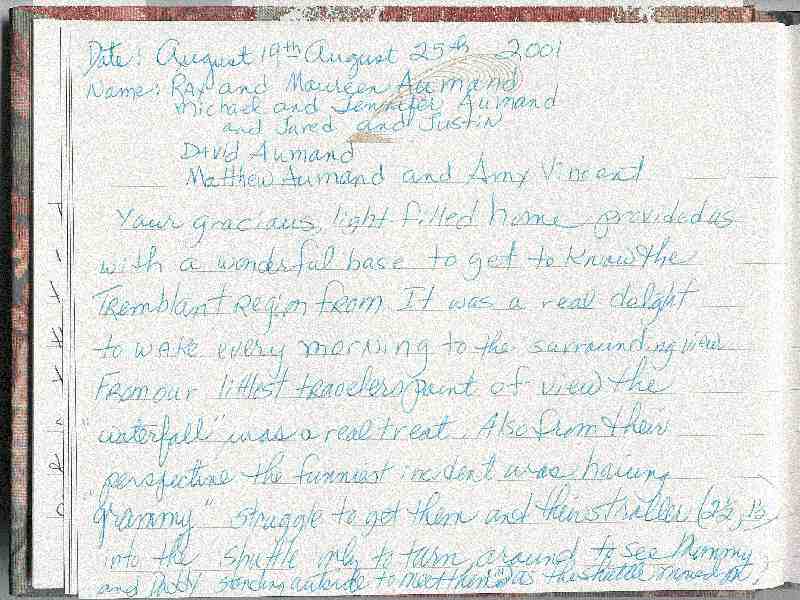 Date: August 19th August 25th 2001
Name: Ray and Maureen Aumand
Michael and Jennifer Aumand
and Jared and Justin
David Aumand
Matthew Aumand and Amy Vincent
Your gracious, light filled home provided us
with a wonderful base to get to know the
Tremblant Region from. It was a real delght
to wake every morning to the surrounding view
From our littlest travelers point of view the
"waterfall" was a real treat. Also from their
perspective the funniest incident was having
"grammy" struggle to get them and their stroller (2½, 1½)
into the shuttle only to turn around to see Mommy
and Daddy standing outside to meet them as the shuttle moved